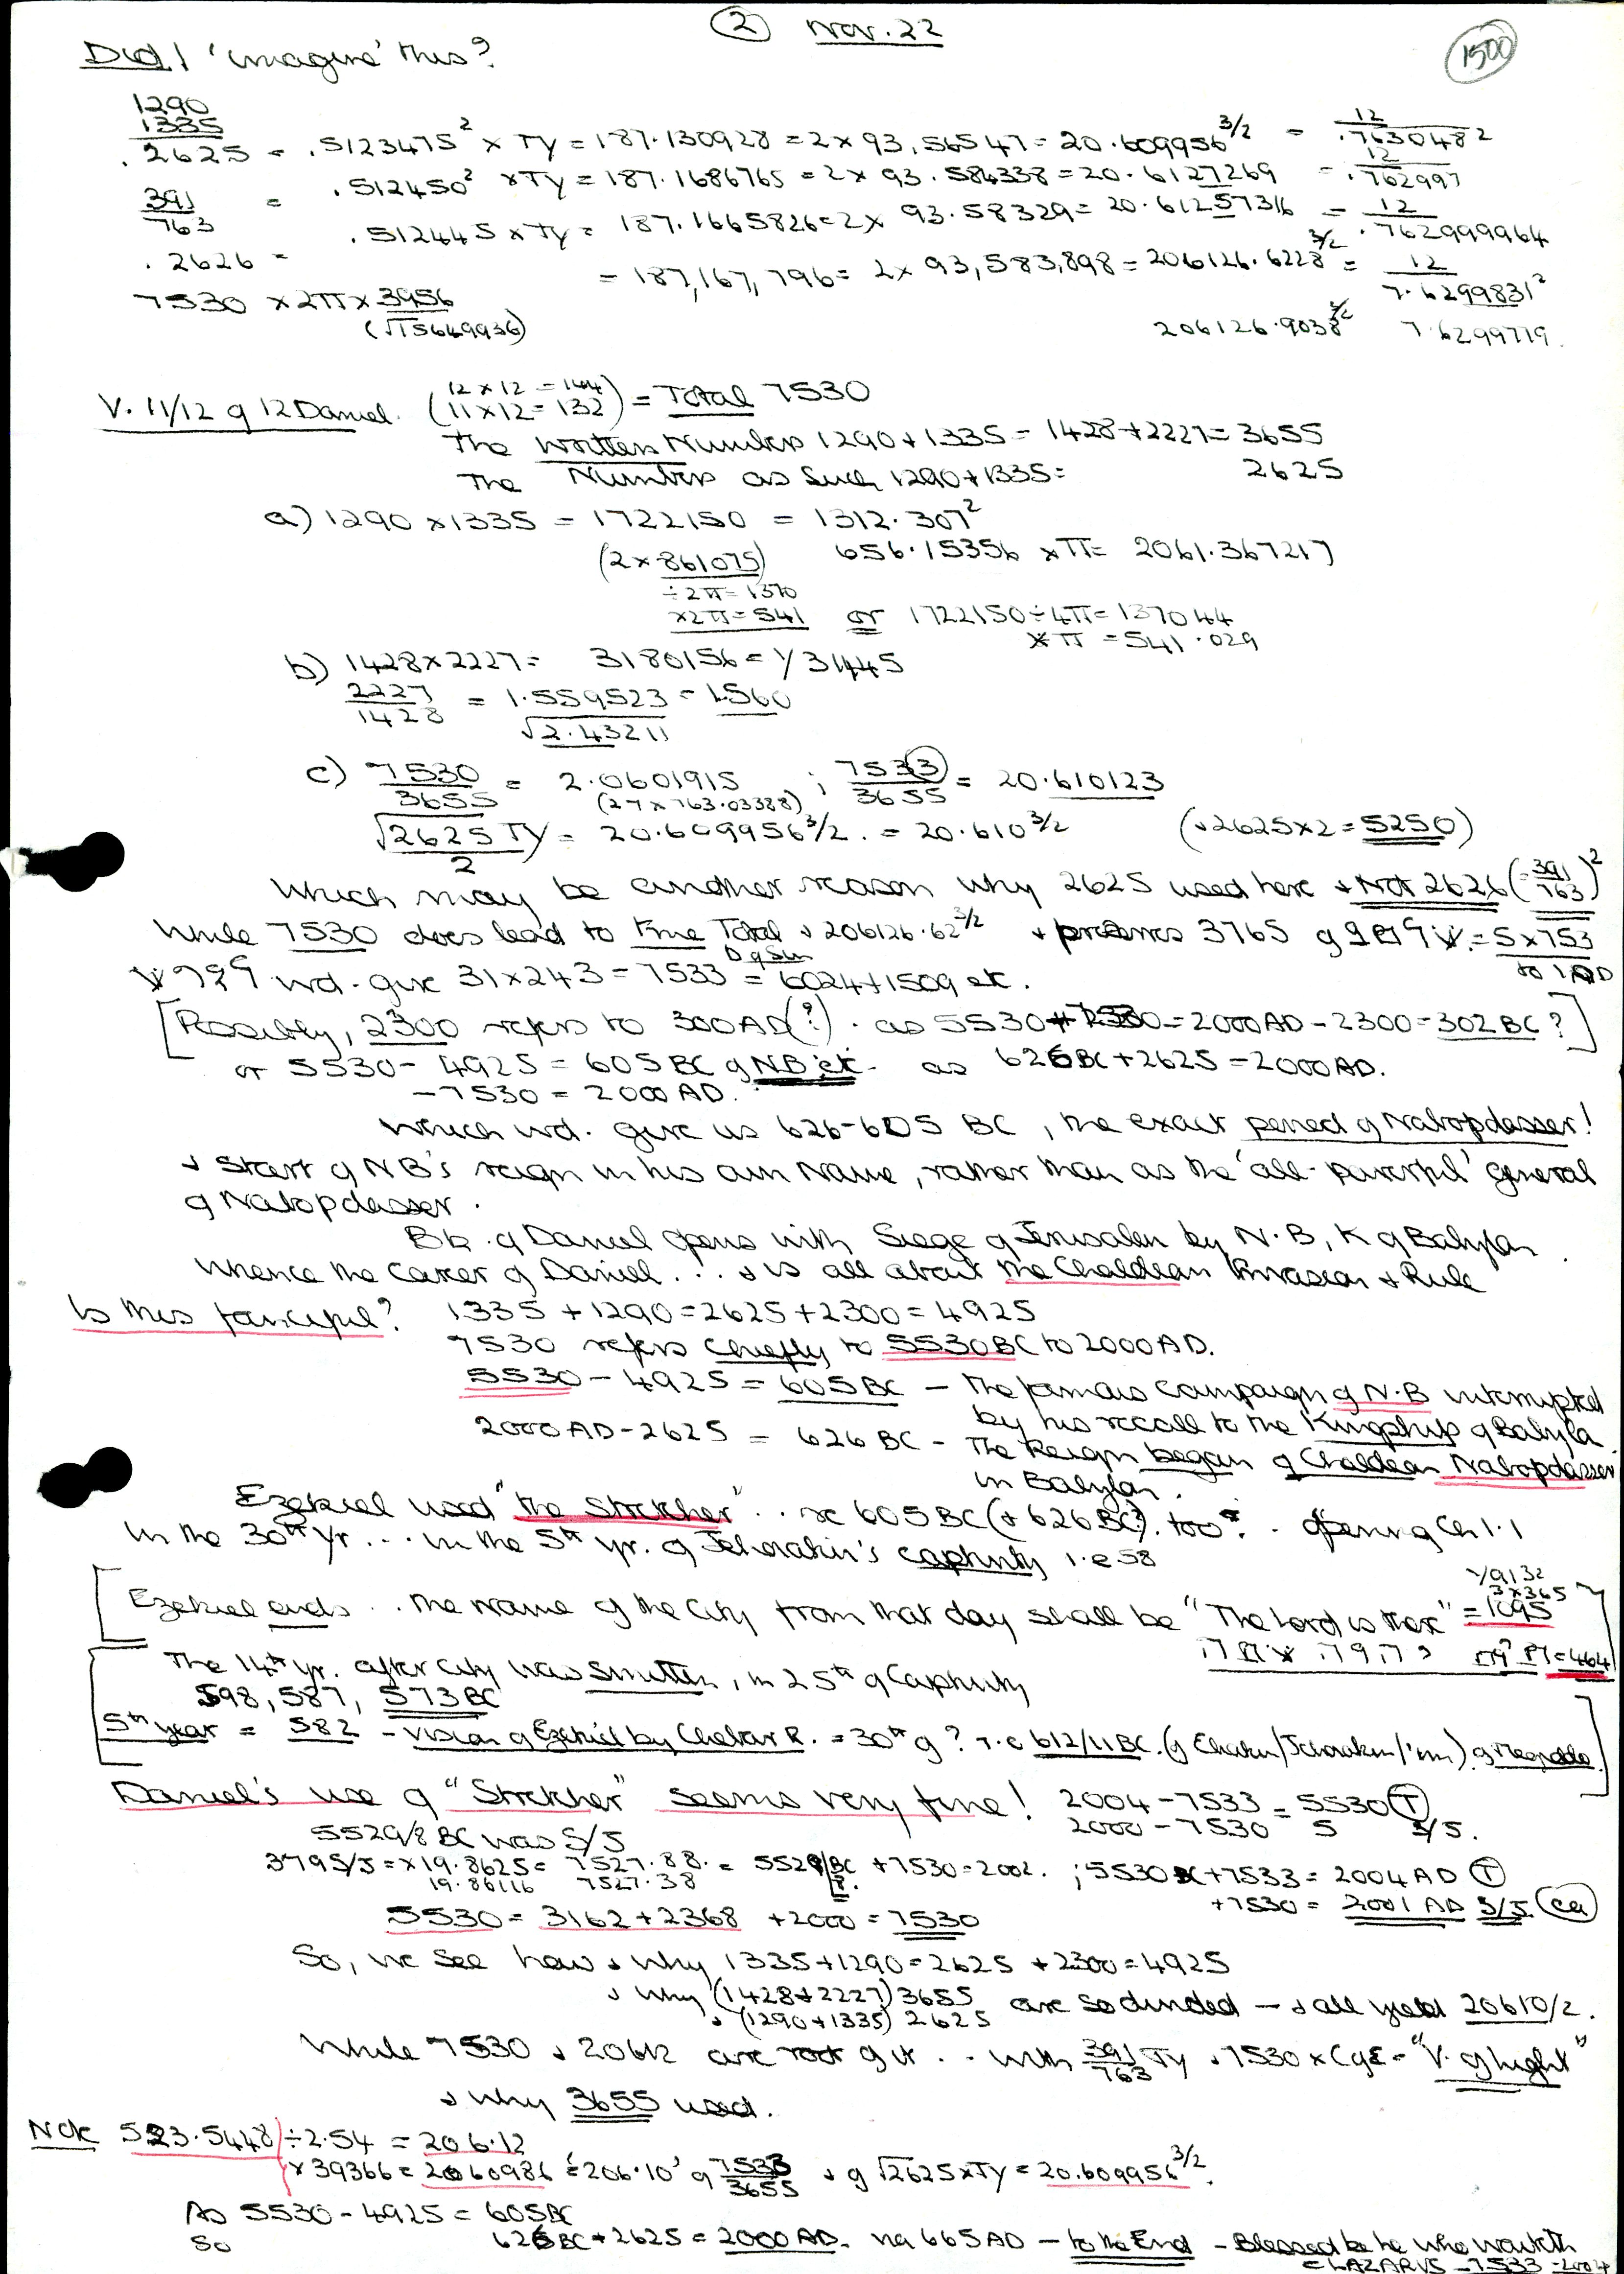 ② Nov. 22
1500
Did I 'imagine' this?
1290
1335
.2625 = .5123475² × TY = 187.130928 = 2 × 93,56547 = 20.609956^3/2 = 12/.7630482
391/763 = .512450² × TY = 187.1686765 = 2 × 93.584338 = 20.6127269 = 12/.762997
.2626 = .512445 × TY = 187.1665826 = 2 × 93.58329 = 20.61257316 = 12/.762999964
7530 × 2π × 3956 = 187,167,796 = 2 × 93,583,898 = 206126.6228^3/2 = 12/7.6299831²
(√15649936) 206126.9038^3/2 7.6299719
V. 11/12 of 12 Daniel. (12 × 12 = 144 / 11 × 12 = 132) = Total 7530
The written Numbers 1290 + 1335 = 1428 + 2227 = 3655
The Numbers as such 1290 + 1335 = 2625
a) 1290 × 1335 = 1722150 = 1312.307²
(2 × 861075) 656.15356 × π = 2061.367217
÷ 2π = 1370
× 2π = 541 or 1722150 ÷ 4π = 137044
× π = 541.029
b) 1428 × 2227 = 3180156 = 1/31445
2227/1428 = 1.559523 = 1.560
√2.43211
c) 7530/3655 = 2.0601915 ; 7533/3655 = 20.610123
(27 × 763.03388)
√2625 TY/2 = 20.609956^3/2 . = 20.610^3/2 (& 2625 × 2 = 5250)
Which may be another reason why 2625 used here & Not 2626 (= 391/763)²
While 7530 does lead to true Total & 206126.62^3/2 & 3765 = 5 × 753
D of Sun to 1 AD
wd. give 31 × 243 = 7533 = 6024 + 1509 etc.
[Possibly, 2300 refers to 300 AD (?) . as 5530 + 7530 = 2000 AD - 2300 = 302 BC ?]
or 5530 - 4925 = 605 BC of NB etc. as 626 BC + 2625 = 2000 AD.
- 7530 = 2000 AD.
Which wd. give us 626-605 BC, the exact period of Nabopolasser!
& start of NB's reign in his own Name, rather than as the 'all-powerful' general
of Nabopolasser.
Bk. of Daniel opens with Siege of Jerusalem by N.B, K of Babylon.
Whence the career of Daniel... & is all about the Chaldean Invasion & Rule
Is this fanciful? 1335 + 1290 = 2625 + 2300 = 4925
7530 refers chiefly to 5530 BC to 2000 AD.
5530 - 4925 = 605 BC - The famous campaign of N.B interrupted
by his recall to the Kingship of Babylon.
2000 AD - 2625 = 626 BC - The Reign began of Chaldean Nabopolasser
in Babylon.
Ezekiel used "the Stretcher" .. re 605 BC (& 626 BC?). too? . opening Ch 1.1
In the 30th yr... in the 5th yr. of Jehoiakin's captivity i.e 58
[Ezekiel ends.. The Name of the City from that day shall be "The Lord is there" = 1095
1/9132
3 × 365
= 464
The 14th yr. after City was smitten, in 25th of Captivity
598, 587, 573 BC
5th year = 582 - Vision of Ezekiel by Chebar R. = 30th of ? i.e 612/11 BC.
Daniel's use of "Stretcher" seems very fine! 2004 - 7533 = 5530 (T)
2000 - 7530 5 S/S.
5529/8 BC was S/S
379 S/S = × 19.8625 = 7527.88. = 5529/8 BC + 7530 = 2002. ; 5530 BC + 7533 = 2004 AD (T)
19.86116 7527.38 + 7530 = 2001 AD S/S
5530 = 3162 + 2368 + 2000 = 7530
So, we see how & why 1335 + 1290 = 2625 + 2300 = 4925
& why (1428 + 2227) 3655
& (1290 + 1335) 2625 are so divided - & all yield 20610/2.
While 7530 & 20612 are root of it .. with 391/763 TY & 7530 × C of E = "V. of Light"
& why 3655 used.
Note 523.5448 ÷ 2.54 = 206.12
× 39366 = 2060986 = 206.10' of 7533/3655 & of √2625 × TY = 20.609956^3/2.
As 5530 - 4925 = 605 BC
So 626 BC + 2625 = 2000 AD. 665 AD - to the End - Blessed be he who waiteth
= LAZARUS - 7533 - 2004